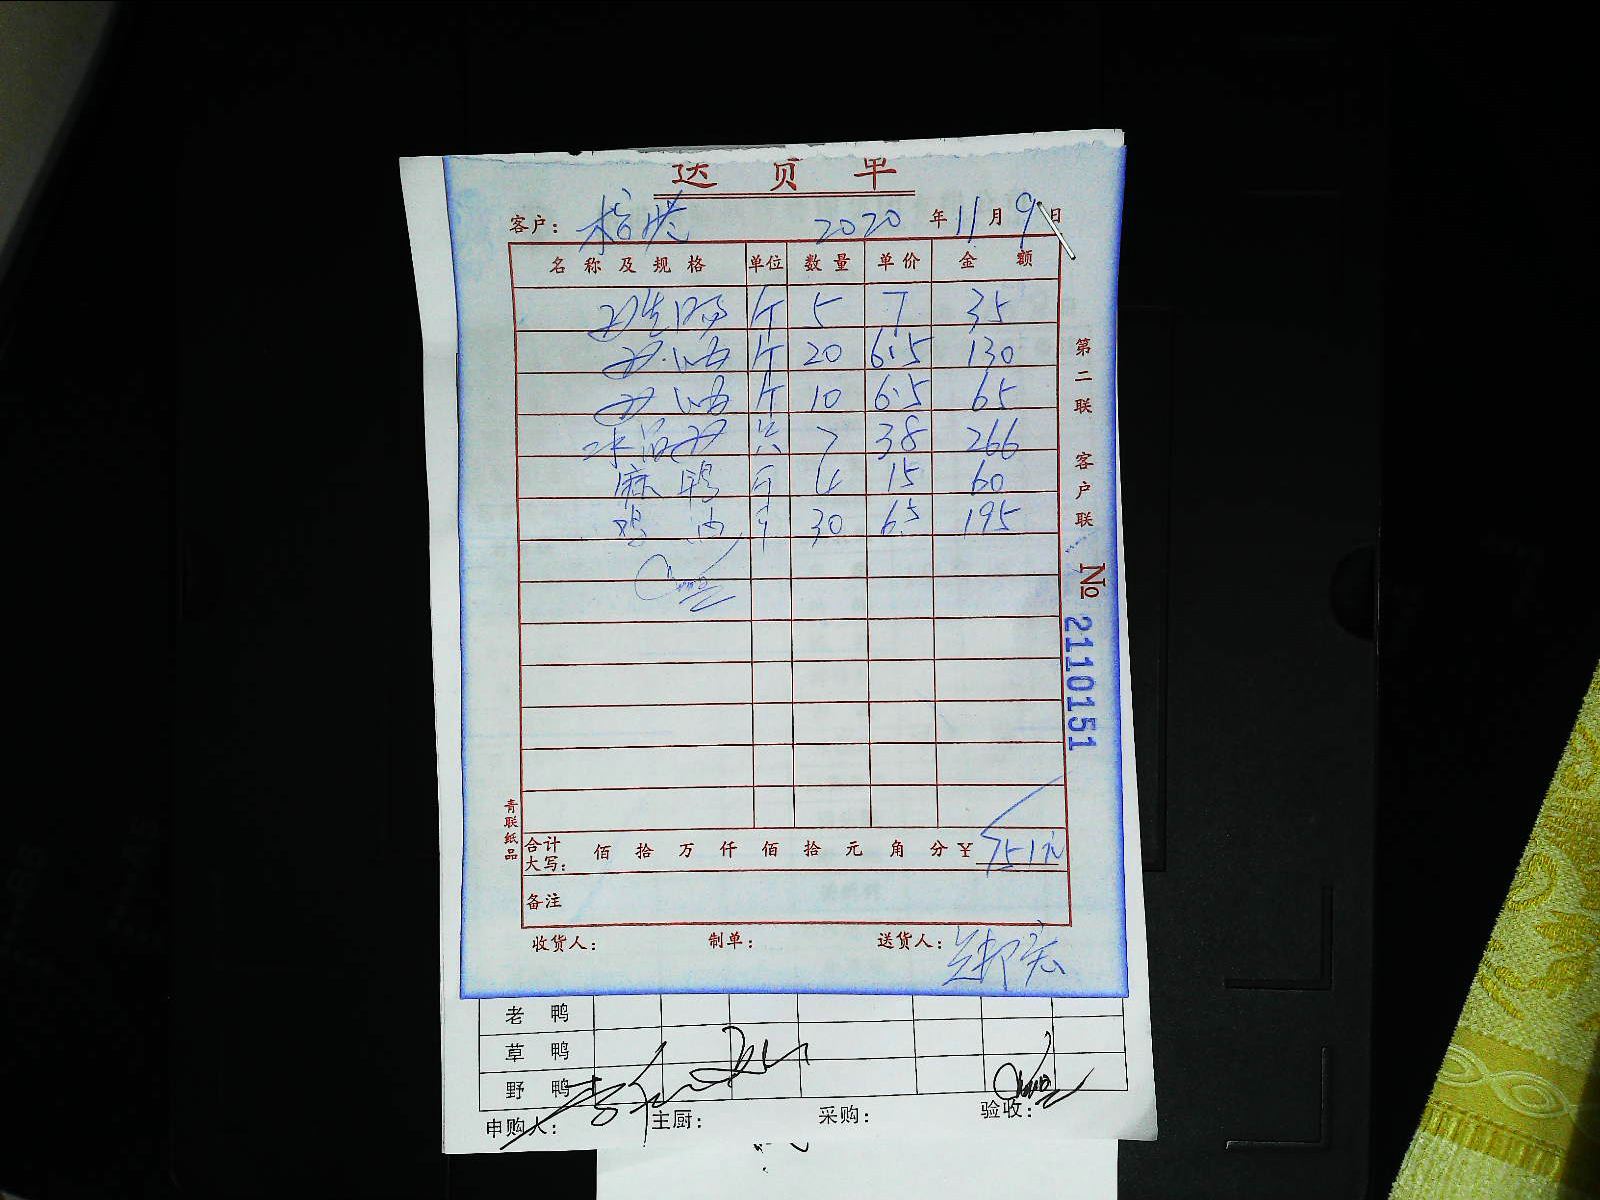 送货单
客户: 2020 年 11 月 9 日
名称及规格 单位 数量 单价 金额
斤 5 7 35
斤 20 6.5 130
斤 10 6.5 65
7 38 266
麻鸭 斤 4 15 60
鸡油 斤 30 6.5 195
第二联 客户联
No 2110151
青联纸品
合计大写: 佰 拾 万 仟 佰 拾 元 角 分 ¥ 751元
备注
收货人: 制单: 送货人:
老鸭
草鸭
野鸭
申购人: 主厨: 采购: 验收: